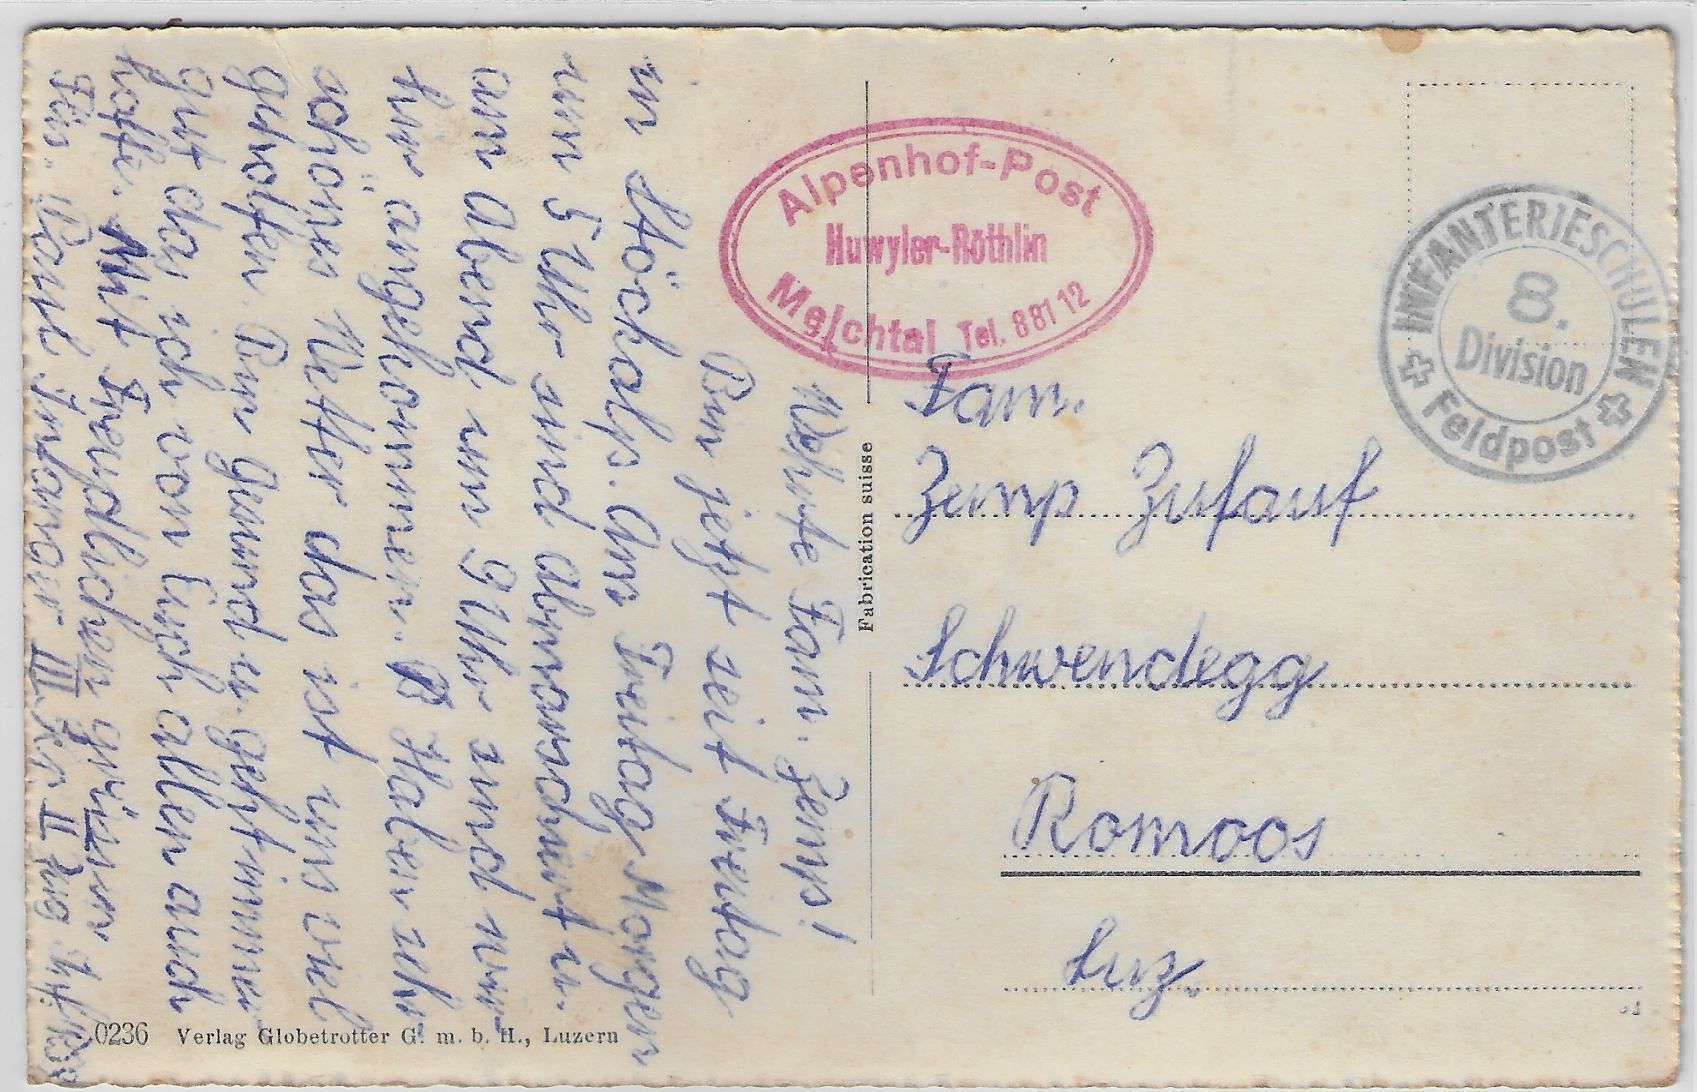 Werte Fam. Zemp!
Bin jetzt seit Freitag
in Stöckalp. Am Freitag Morgen
um 5 Uhr sind abmarschiert u.
am Abend um 9 Uhr und wir
hir angekommen. Haben sehr
schönes Wetter das ist uns viel
geholfen. Bin Gesund u. geht immer
gut das ich von Euch allen auch
hoffe. Mit freundlichen grüssen
Füs. Infanterie III Kp. II Zug
Alpenhof-Post
Huwyler-Röthlin
Melchtal Tel. 881 12
INFANTERIESCHULEN
8.
Division
Feldpost
Fam.
Zemp Zufauf
Schwendegg
Romoos
Luz.
Fabrication suisse
0236 Verlag Globetrotter G. m. b. H., Luzern